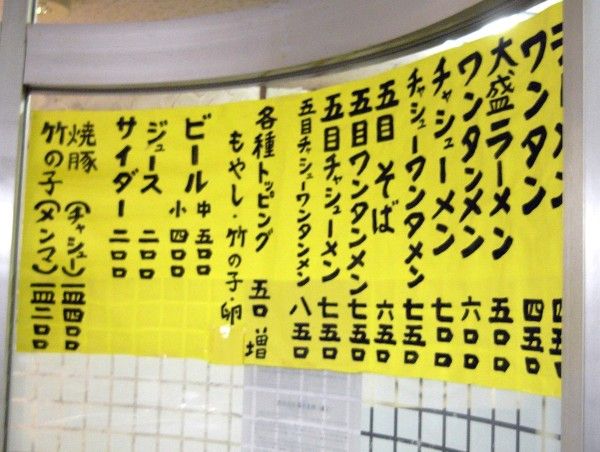 ラーメン 四五〇
ワンタン 四五〇
大盛ラーメン 五〇〇
ワンタンメン 六〇〇
チャシューメン 七〇〇
チャシューワンタメン 七五〇
五目そば 六五〇
五目ワンタンメン 七五〇
五目チャシューメン 七五〇
五目チャシューワンタンメン 八五〇
各種トッピング 五〇増
もやし・竹の子・卵
ビール 中 五〇〇
小 四〇〇
ジュース 二〇〇
サイダー 二〇〇
焼豚(チャシュー)一皿四〇〇
竹の子(メンマ)一皿二〇〇